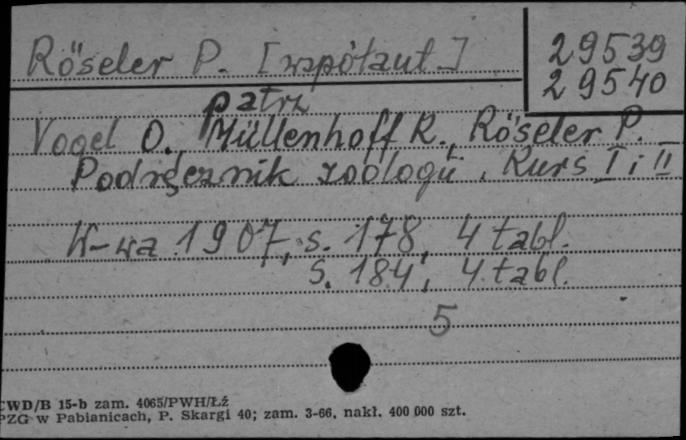 Röseler P. [współaut.]
29539
29540
patrz
Vogel O., Müllenhoff R., Röseler P.
Podręcznik zoologii. Kurs I i II
W-wa 1907, s. 178, 4 tabl.
S. 184, 4 tabl.
5
CWD/B 15-b zam. 4065/PWH/Łź
PZG w Pabianicach, P. Skargi 40; zam. 3-66, nakł. 400 000 szt.